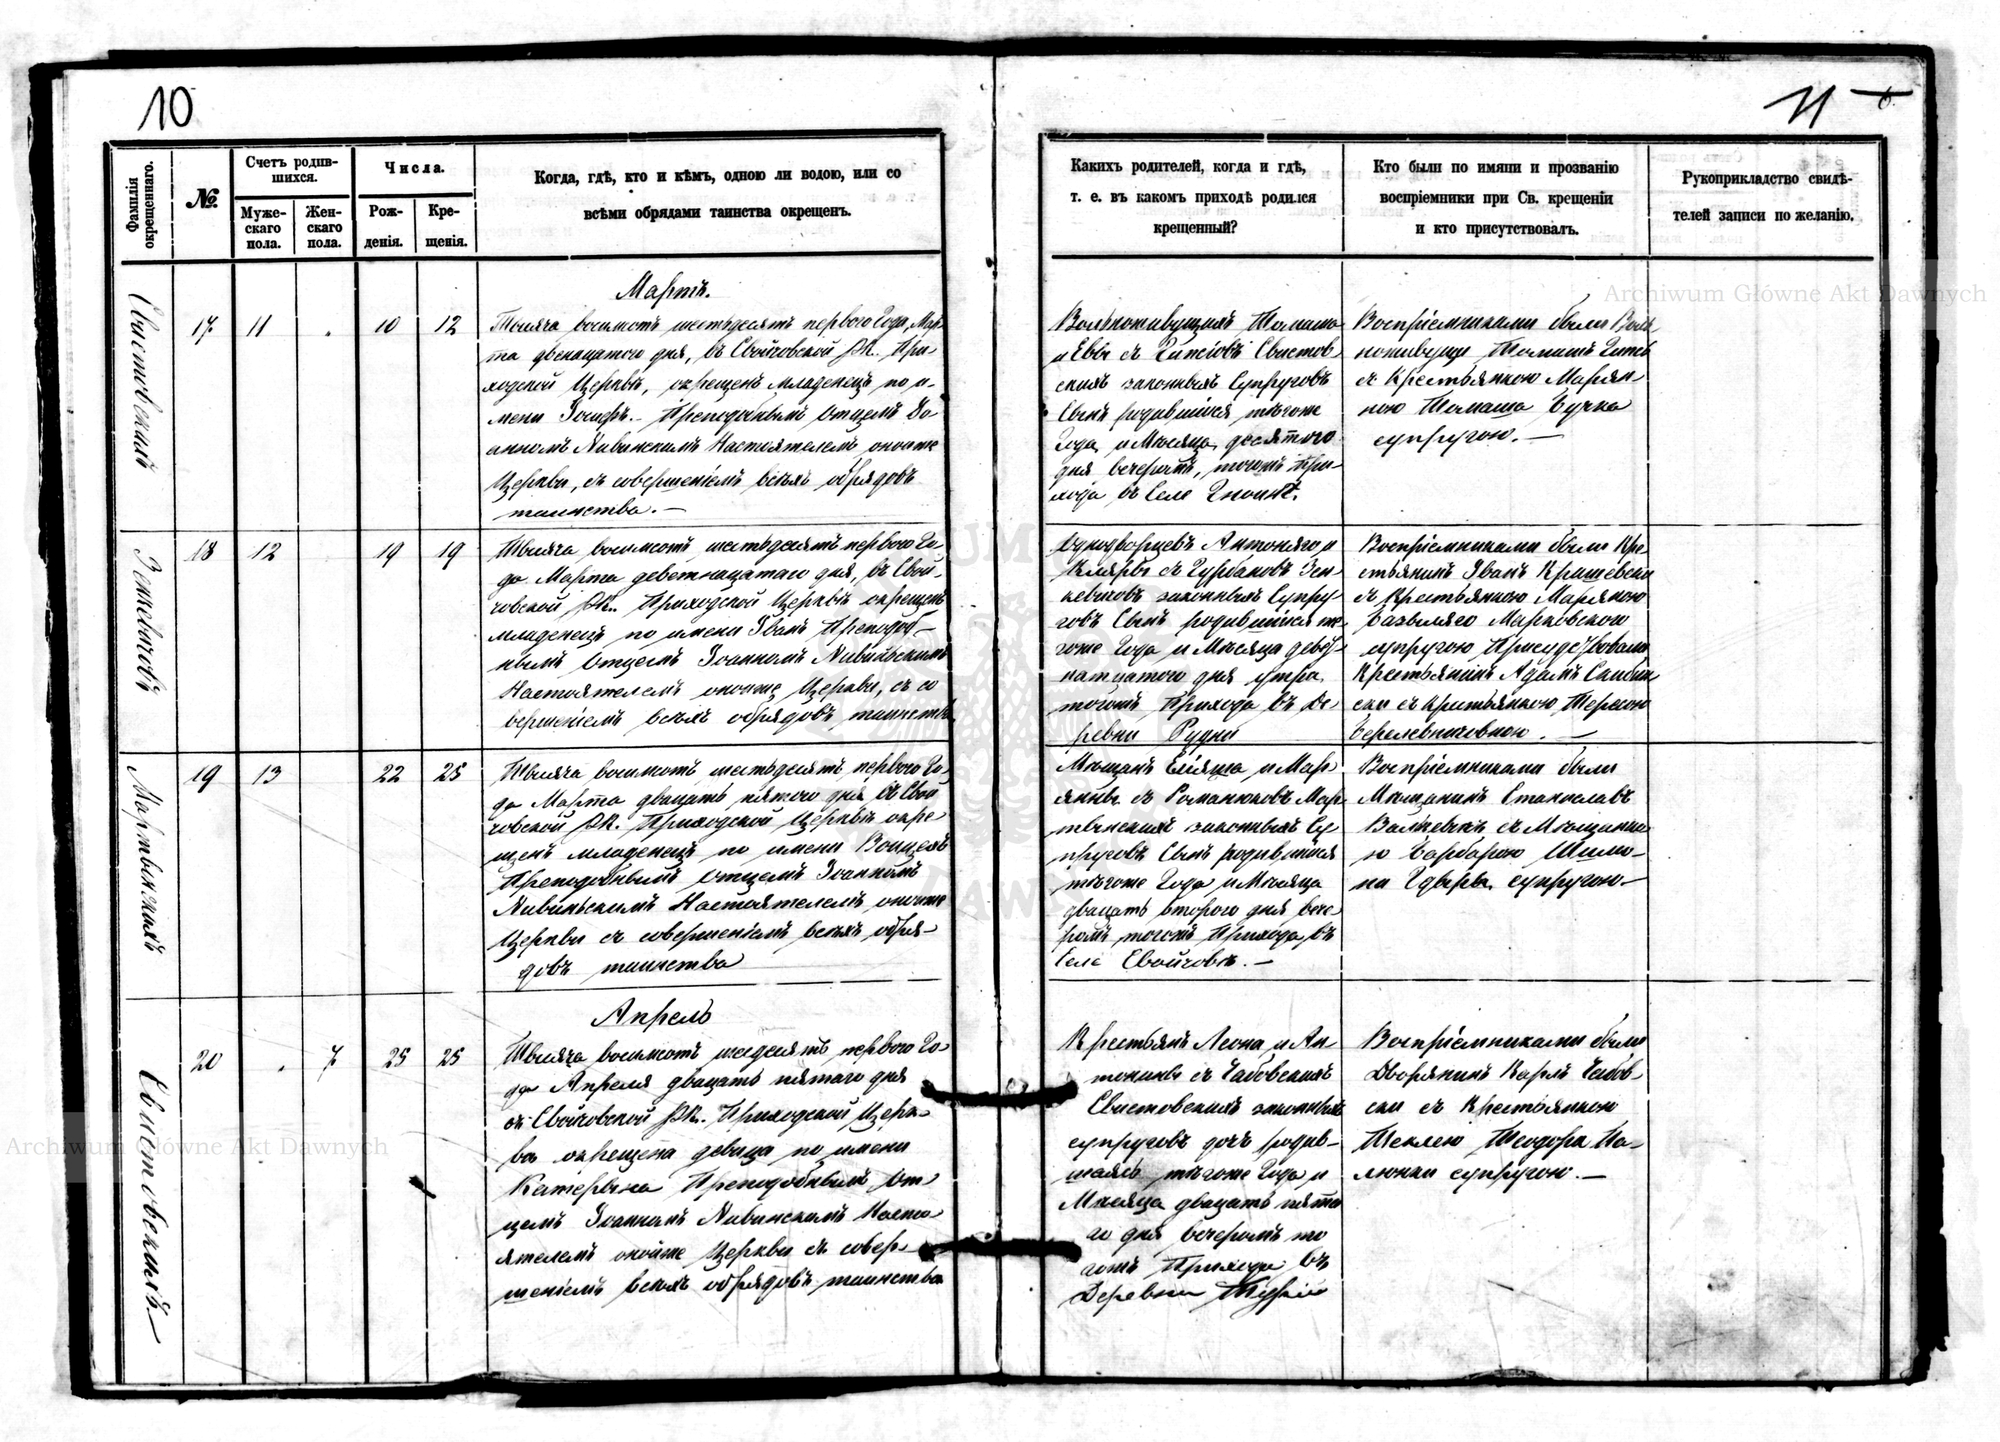 10
Фамилія окрещеннаго.
№.
Счетъ родив-
шихся.
Муже-
скаго
пола.
Жен-
скаго
пола.
Числа.
Рож-
денія.
Кре-
щенія.
Когда, гдѣ, кто и кѣмъ, одною ли водою, или со
всѣми обрядами таинства окрещенъ.
Мартъ.
Свистовскихъ
17 11 10 12
Тысяча восимсотъ шестьдесятъ первого Года, Мар-
та двенацатого дня, въ Свойчовской РК. При-
ходской Церквѣ, окрещенъ младенецъ по и-
мени Іосифъ. Преподобнымъ Отцемъ Іо-
анномъ Настоятелемъ оноиже
Церкви, съ совершеніемъ всѣхъ обрядовъ
таинства.
18 12 19 19
Тысяча восимсотъ шестьдесятъ первого Го-
да Марта деветнацатаго дня, въ Свой-
човской РК. Приходской Церквѣ окрещенъ
младенецъ по имени Іванъ Преподоб-
нымъ Отцемъ Іоанномъ
Настоятелемъ оноиже Церкви, съ со
вершеніемъ всѣхъ обрядовъ таинства
Мартынскихъ
19 13 22 25
Тысяча восимсотъ шестьдесятъ первого Го-
да Марта двацать пятого дня въ Свой
човской РК. Приходской Церквѣ окре-
щенъ младенецъ по имени Войцехъ
Преподобнымъ Отцемъ Іоанномъ
Настоятелемъ оноиже
Церкви съ совершеніемъ всѣхъ обря-
довъ таинства
Апрель
Свистовскихъ
20 7 25 25
Тысяча восимсотъ шедесятъ первого Го-
да Апреля двацать пятаго дня
въ Свойчовской РК. Приходской Церк-
ва окрещена девица по имени
Катерына Преподобнымъ От-
цемъ Іоанномъ Насто-
ятелемъ оноиже Церкви съ совер-
шеніемъ всѣхъ обрядовъ таинства
11
6.
Какихъ родителей, когда и гдѣ,
т. е. въ какомъ приходѣ родился
крещенный?
Кто были по имяни и прозванію
воспріемники при Св. крещеніи
и кто присутствовалъ.
Рукоприкладство свидѣ-
телей записи по желанію.
Вольноживущихъ Томаша
и Евы съ Свистов-
скихъ законныхъ Супруговъ
Сынъ родившійся тѣгоже
Года и Мѣсяца десятого
дня вечеромъ, тогожъ При-
хода въ Селе
Воспріемниками были Воль-
ноживущи Томашъ
съ Крестьянкою Марян-
ною Томаша
супругою.
Однодворцевъ Антоняго и
съ Гурбановъ Зен-
кевичовъ законныхъ Супру-
говъ Сынъ родившійся те-
гоже Года и Мѣсяца девет-
натцатого дня утра
тогожъ Прихода въ Де-
ревни Рудни
Воспріемниками были Кре-
стьянинъ Іванъ
съ Крестьянкою Маряною
Марковского
супругою
Крестьянинъ Адамъ
съ Крестьянкою Терезою
Мѣщанъ и Мар-
янны съ Романюковъ Мар-
тынскихъ законныхъ Су-
пруговъ Сынъ родившійся
тѣгоже Года и Мѣсяца
двацать второго дня вече-
ромъ тогожъ Прихода въ
Селе Свойчовъ.
Воспріемниками были
Мѣщанинъ Станиславъ
съ Мѣщанки-
ю Барбарою Шимо-
на супругою
Крестьянъ Леона и Ан-
тонины съ
Свистовскихъ законныхъ
супруговъ дочь родив-
шаясь тѣгоже Года и
Мѣсяца двацать пято
го дня вечеромъ то
гожъ Прихода въ
Деревни
Воспріемниками были
Дворянинъ Карлъ
ски съ Крестьянкою
Теклею Теодора Па-
люхи супругою.
Archiwum Główne Akt Dawnych
Archiwum Główne Akt Dawnych